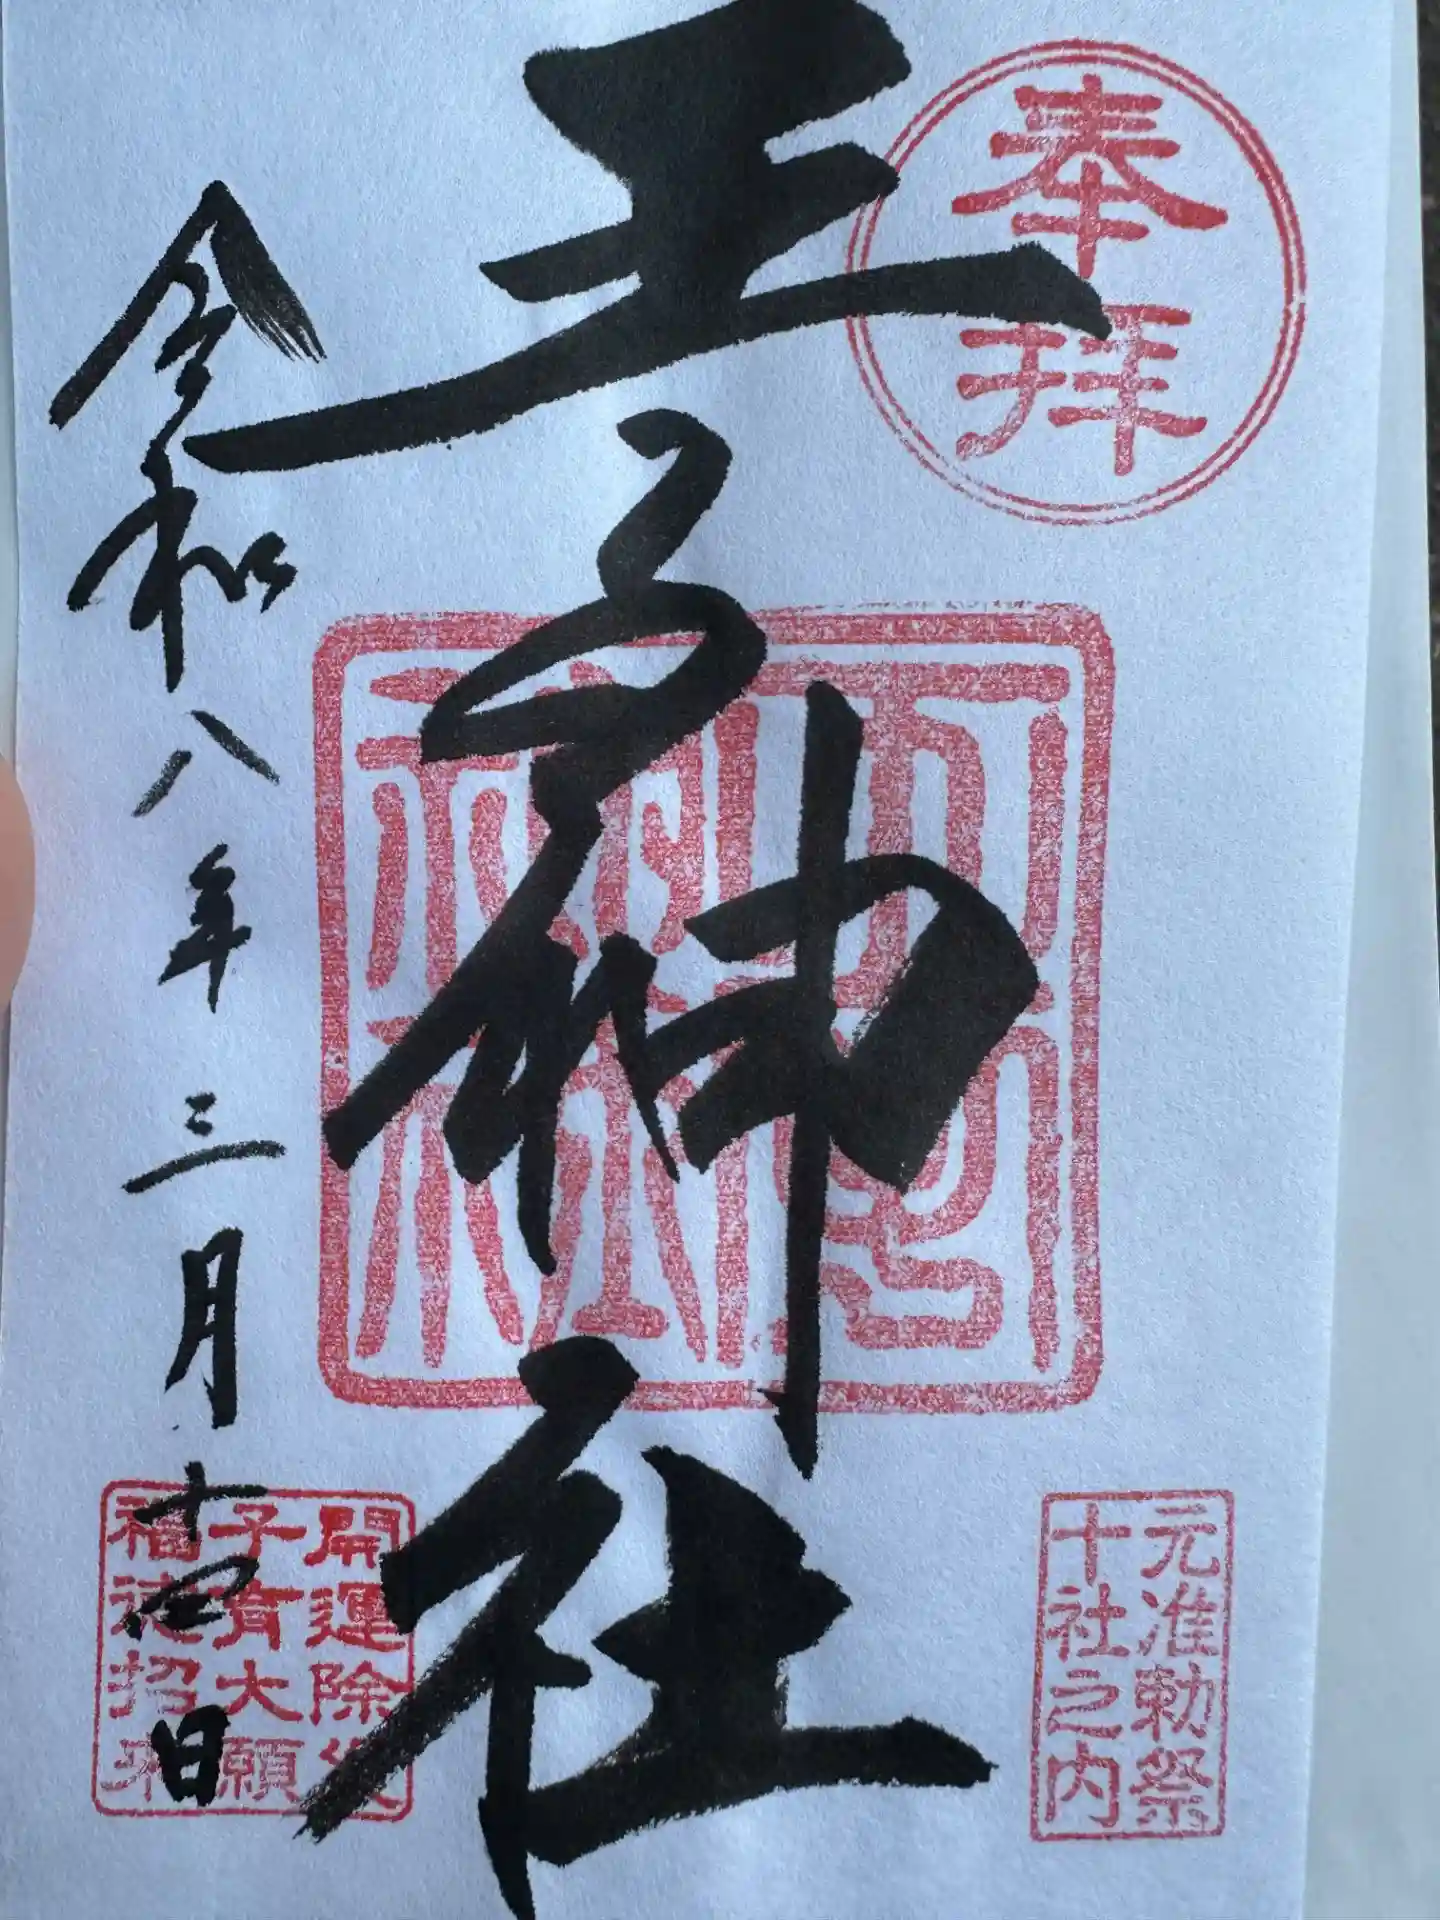 奉拝
王子神社
元准勅祭
十社之内
令和八年三月十四日
開運除災
子育大願
福徳招来